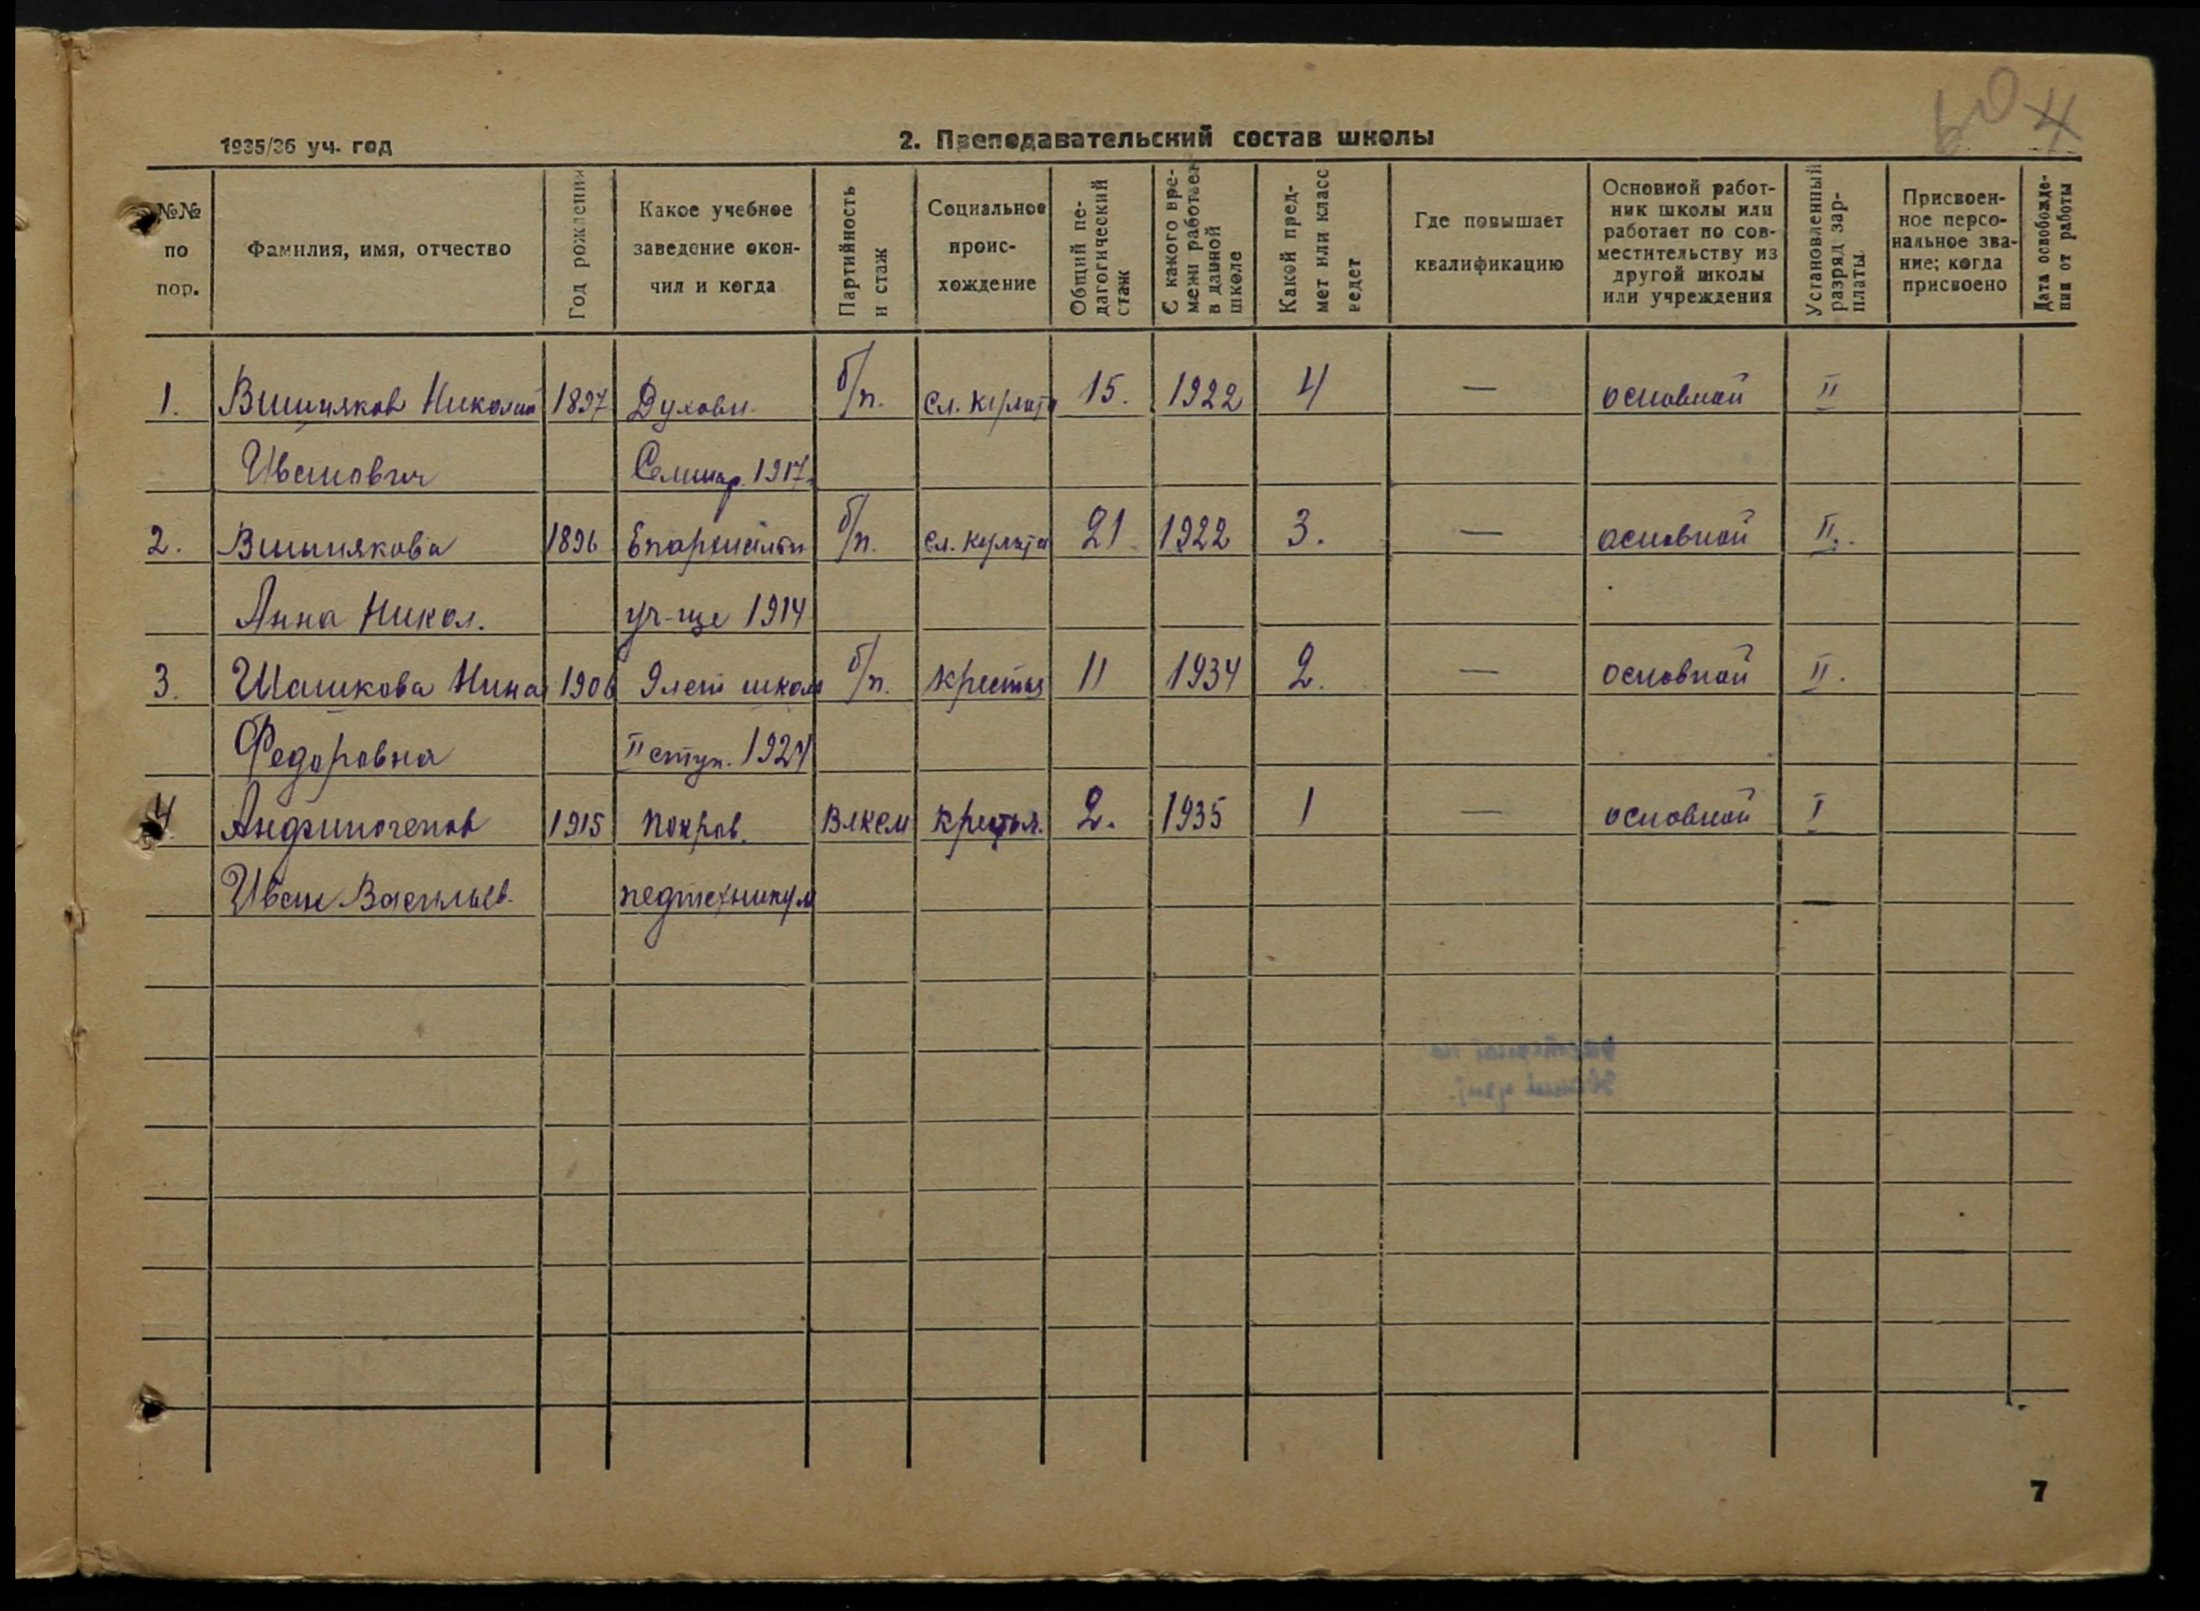 1935/36 уч. год
2. Преподавательский состав школы
№№ по пор.
Фамилия, имя, отчество
Год рождения
Какое учебное заведение окончил и когда
Партийность и стаж
Социальное происхождение
Общий педагогический стаж
С какого времени работает в данной школе
Какой предмет или класс ведет
Где повышает квалификацию
Основной работник школы или работает по совместительству из другой школы или учреждения
Установленный разряд зарплаты
Присвоенное персональное звание; когда присвоено
Дата освобождения от работы
1. Вишняков Николай 1897 Духовн. б/п. сл. культа 15. 1922 4 — основной II
Иванович Семинар. 1917.
2. Вишнякова 1896 Епархиальн. б/п. сл. культа 21 1922 3. — основной II.
Анна Никол. уч-ще 1914
3. Шашкова Нина 1906 9 лет школ б/п. крестья 11 1934 2. — основной II.
Федоровна II ступ. 1924
4. Анфиногенов 1915 Покров. Влксм крестья. 2. 1935 1 — основной I
Иван Васильев. педтехникум
7